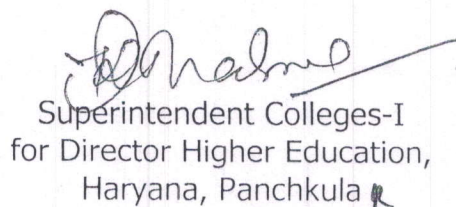 Superintendent Colleges-I
for Director Higher Education,
Haryana, Panchkula